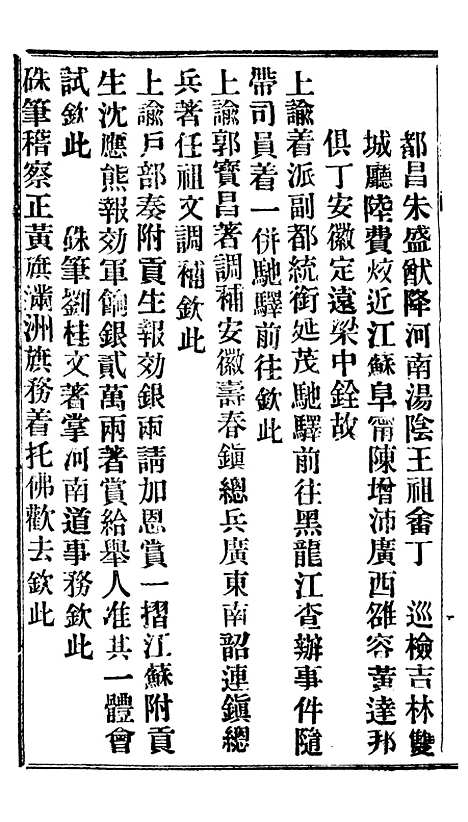 都昌朱盛猷降河南湯陰王祖畬丁　巡檢吉林雙
城廳陸費炆近江蘇阜甯陳增沛廣西雒容黃達邦
俱丁安徽定遠梁中銓故
上諭着派副都統銜延茂馳驛前往黑龍江查辦事件隨
帶司員着一併馳驛前往欽此
上諭郭寶昌著調補安徽壽春鎮總兵廣東南韶連鎮總
兵著任祖文調補欽此
上諭戶部奏附貢生報効銀兩請加恩賞一摺江蘇附貢
生沈應熊報効軍餉銀貳萬兩著賞給舉人准其一體會
試欽此　　硃筆劉桂文著掌河南道事務欽此
硃筆稽察正黃旗滿洲旗務着托佛歡去欽此